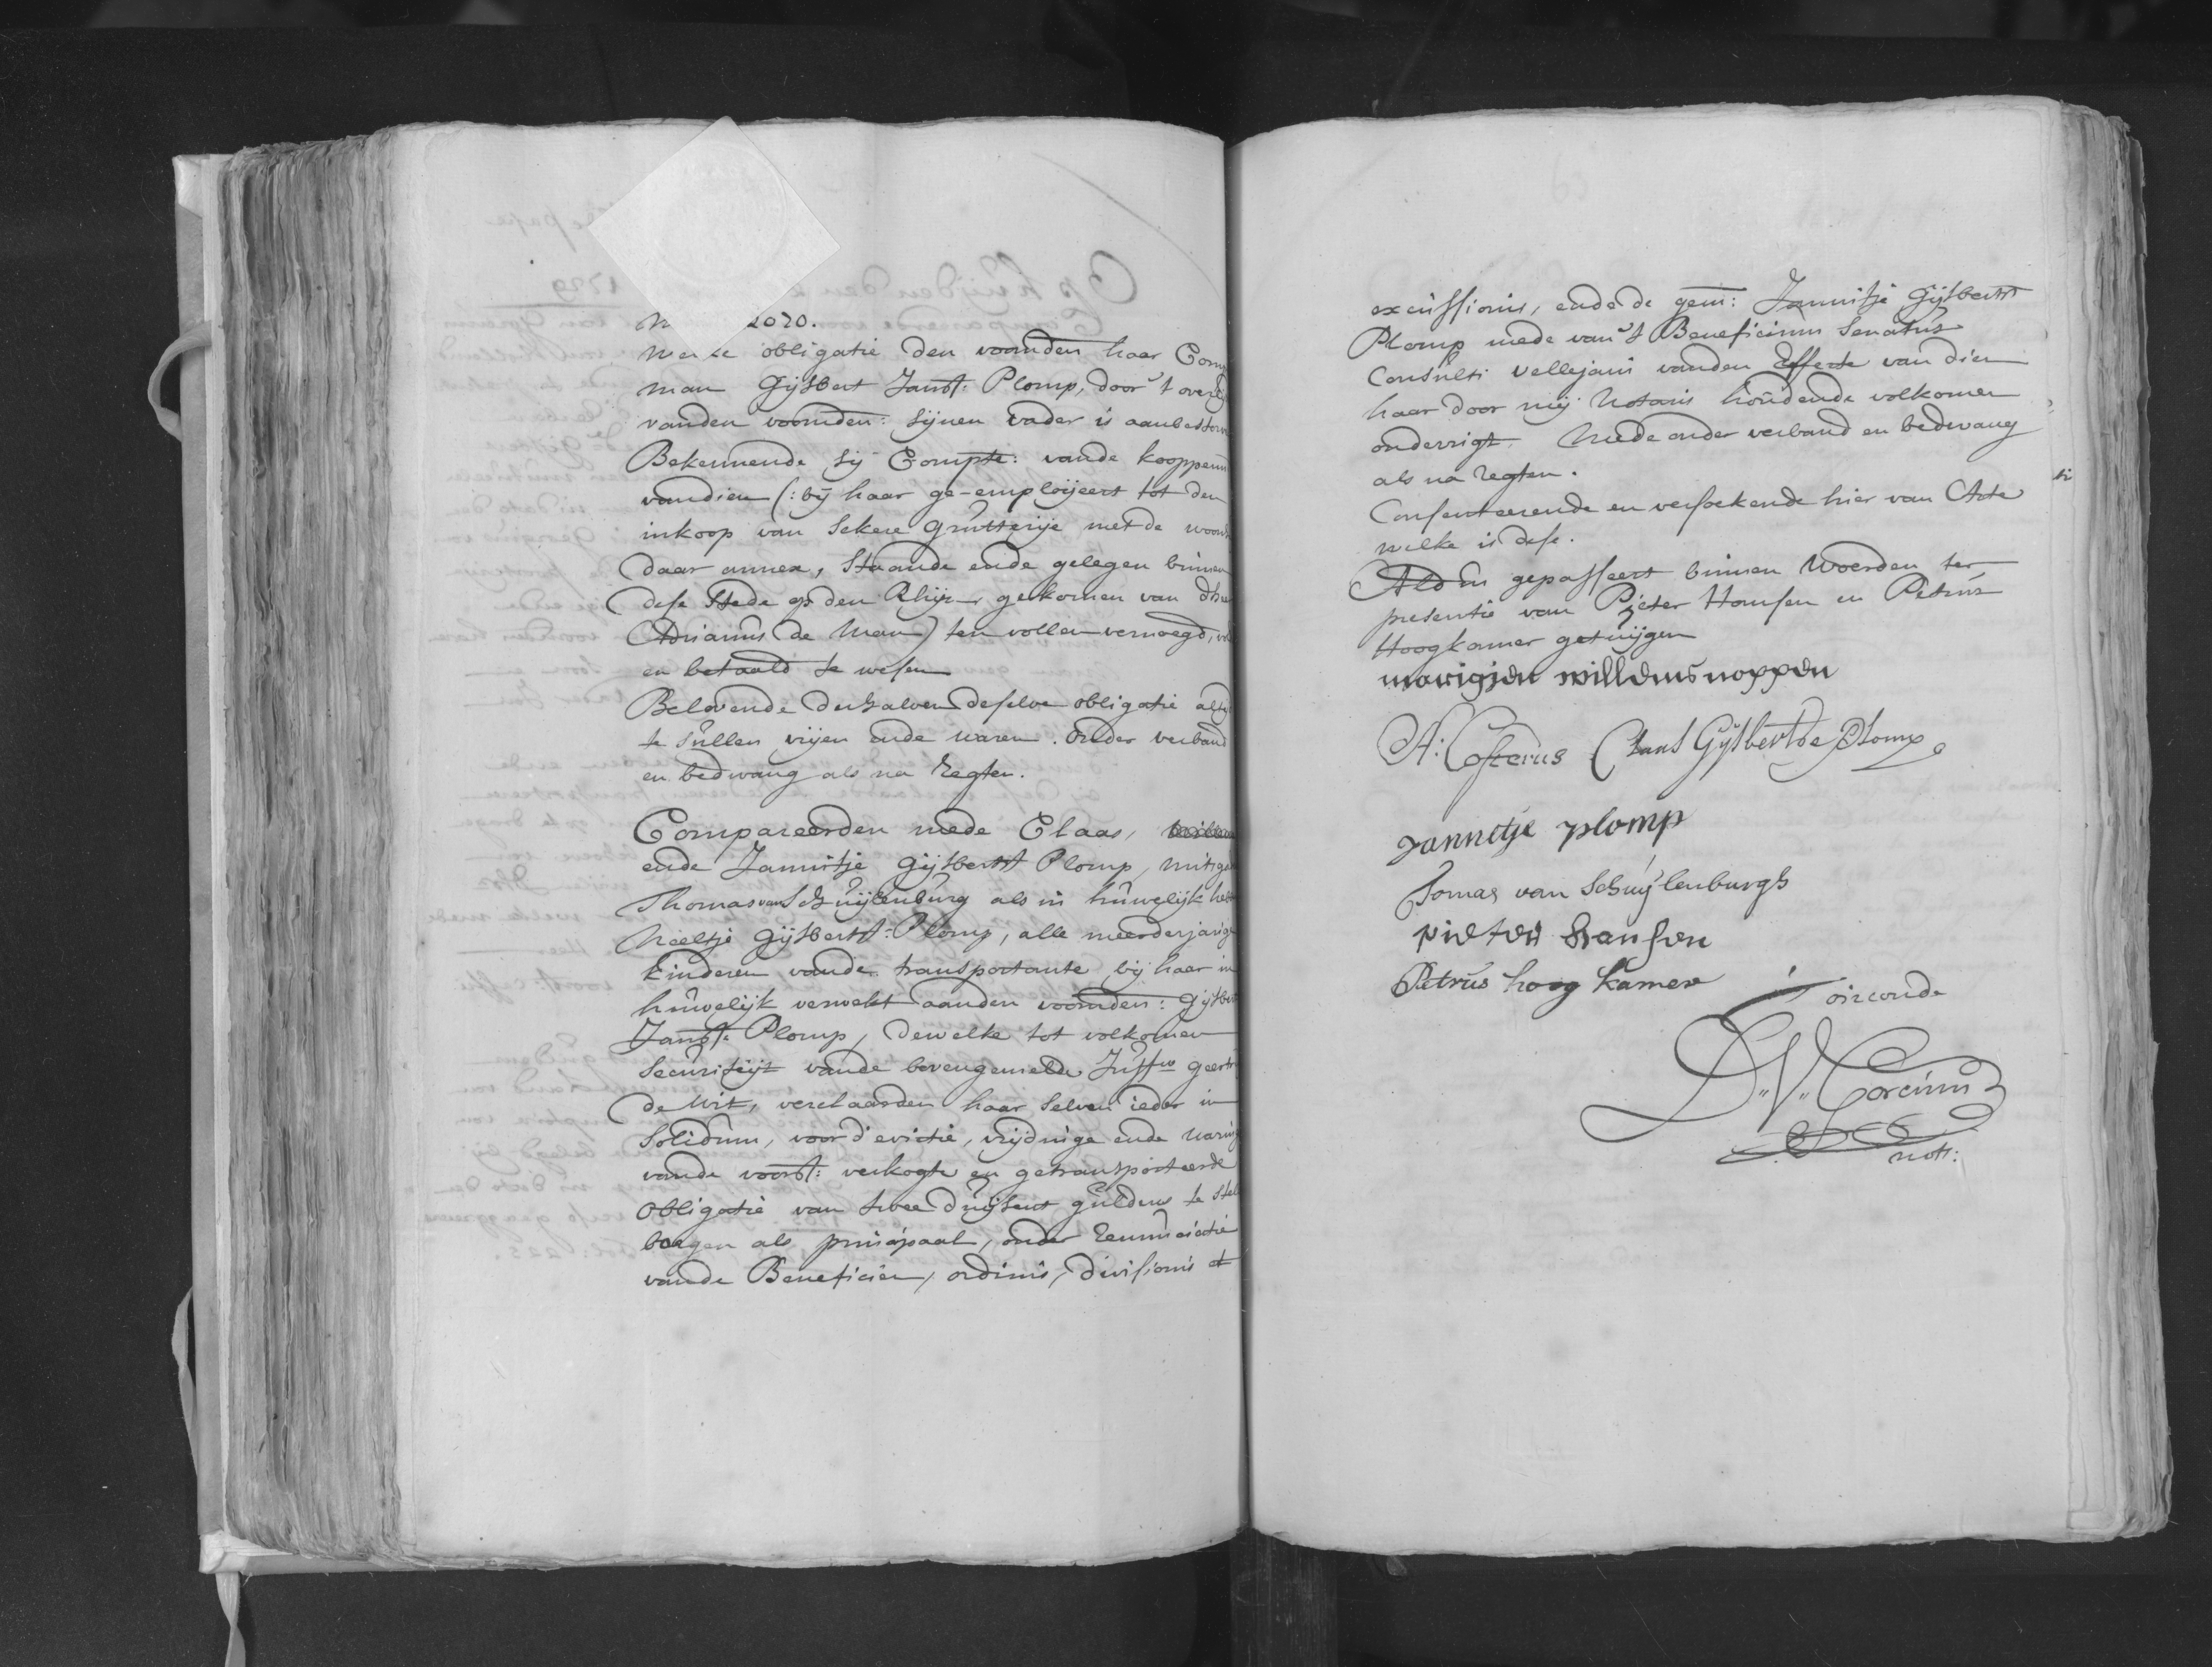 2020.
obligatie den voornden haar
man Gijsbert Jansz: Plomp, door 't
vanden voornden: sijnen vader is
Bekennende sij Compte: vande
van dien (: bij haar ge-emploijeert tot den
inkoop van sekere Grutterije met de
daar annex, staande ende gelegen binnen
dese stede op den Rhijn, gekomen van
Adrianus de Man) ten vollen vernoegd,
en betaald te wesen
Belovende derhalven deselve obligatie
te sullen vrijen ende waren. onder verband
en bedwang als na Regten.
Compareerden mede Claas,
ende Jannitje Gijsberts Plomp,
Thomas van Schuijlenburg als in huwelijk
Neeltje Gijsberts: Plomp, alle
kinderen vande transportante, bij haar in
huwelijk verwekt aanden voornden:
Jansz: Plomp, dewelke tot volkomen
securiteijt vande bovengemelde Juffw
de Wit, verclaarden haar selven ieder in
solidum, voor d'evictie, vrijdinge ende
vande voorsz: verkogte en getransporteerde
obligatie van twee duijsent guldens te
borgen als principaal, onder Renunciatie
vande Beneficien, ordinis, divisionis et
excussionis, ende de gem: Jannitje Gijsberts
Plomp mede van 't Beneficium Senatus
Consulti vellejani vanden Effecte van dien
haar door mij Notaris houdende volkomen
onderrigt. Mede onder verband en bedwang
als na regten.
Consenteerende en versoekende hier van Acte
welke is dese.
Aldus gepasseert binnen Woerden ter
presentie van Pieter Hansen en Petrus
Hoogkamer getuijgen
marigjen willems noppen
A: Costerus Claas Gijsbertse Plomp
Jannetje plomp
Tomas van Schuijlenburgh
pieter hansen
Petrus hoog kamer
T' oirconde
D. V. Corcinus
nots: